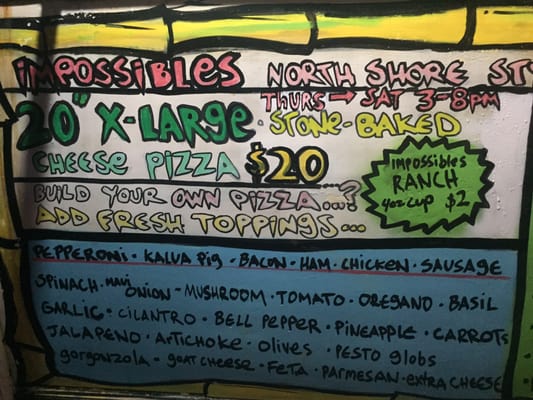 iMPOSSIBLES NORTH SHORE ST
THURS → SAT 3-8PM
20" X-LARGE · STONE-BAKED
CHEESE PIZZA $20
impossibles
RANCH
4oz cup $2
BUILD YOUR OWN PIZZA...?
ADD FRESH TOPPINGS...
PEPPERONI · KALUA Pig · BACON · HAM · CHICKEN · SAUSAGE
SPINACH · maui ONION · MUSHROOM · TOMATO · OREGANO · BASIL
GARLIC · CILANTRO · BELL PEPPER · PINEAPPLE · CARROTS
JALAPENO · ArTiCHOKE · OLiVES · PESTO globs
gorgonzola · goat CHEESE · FETA · PARMESAN · extra CHEESE